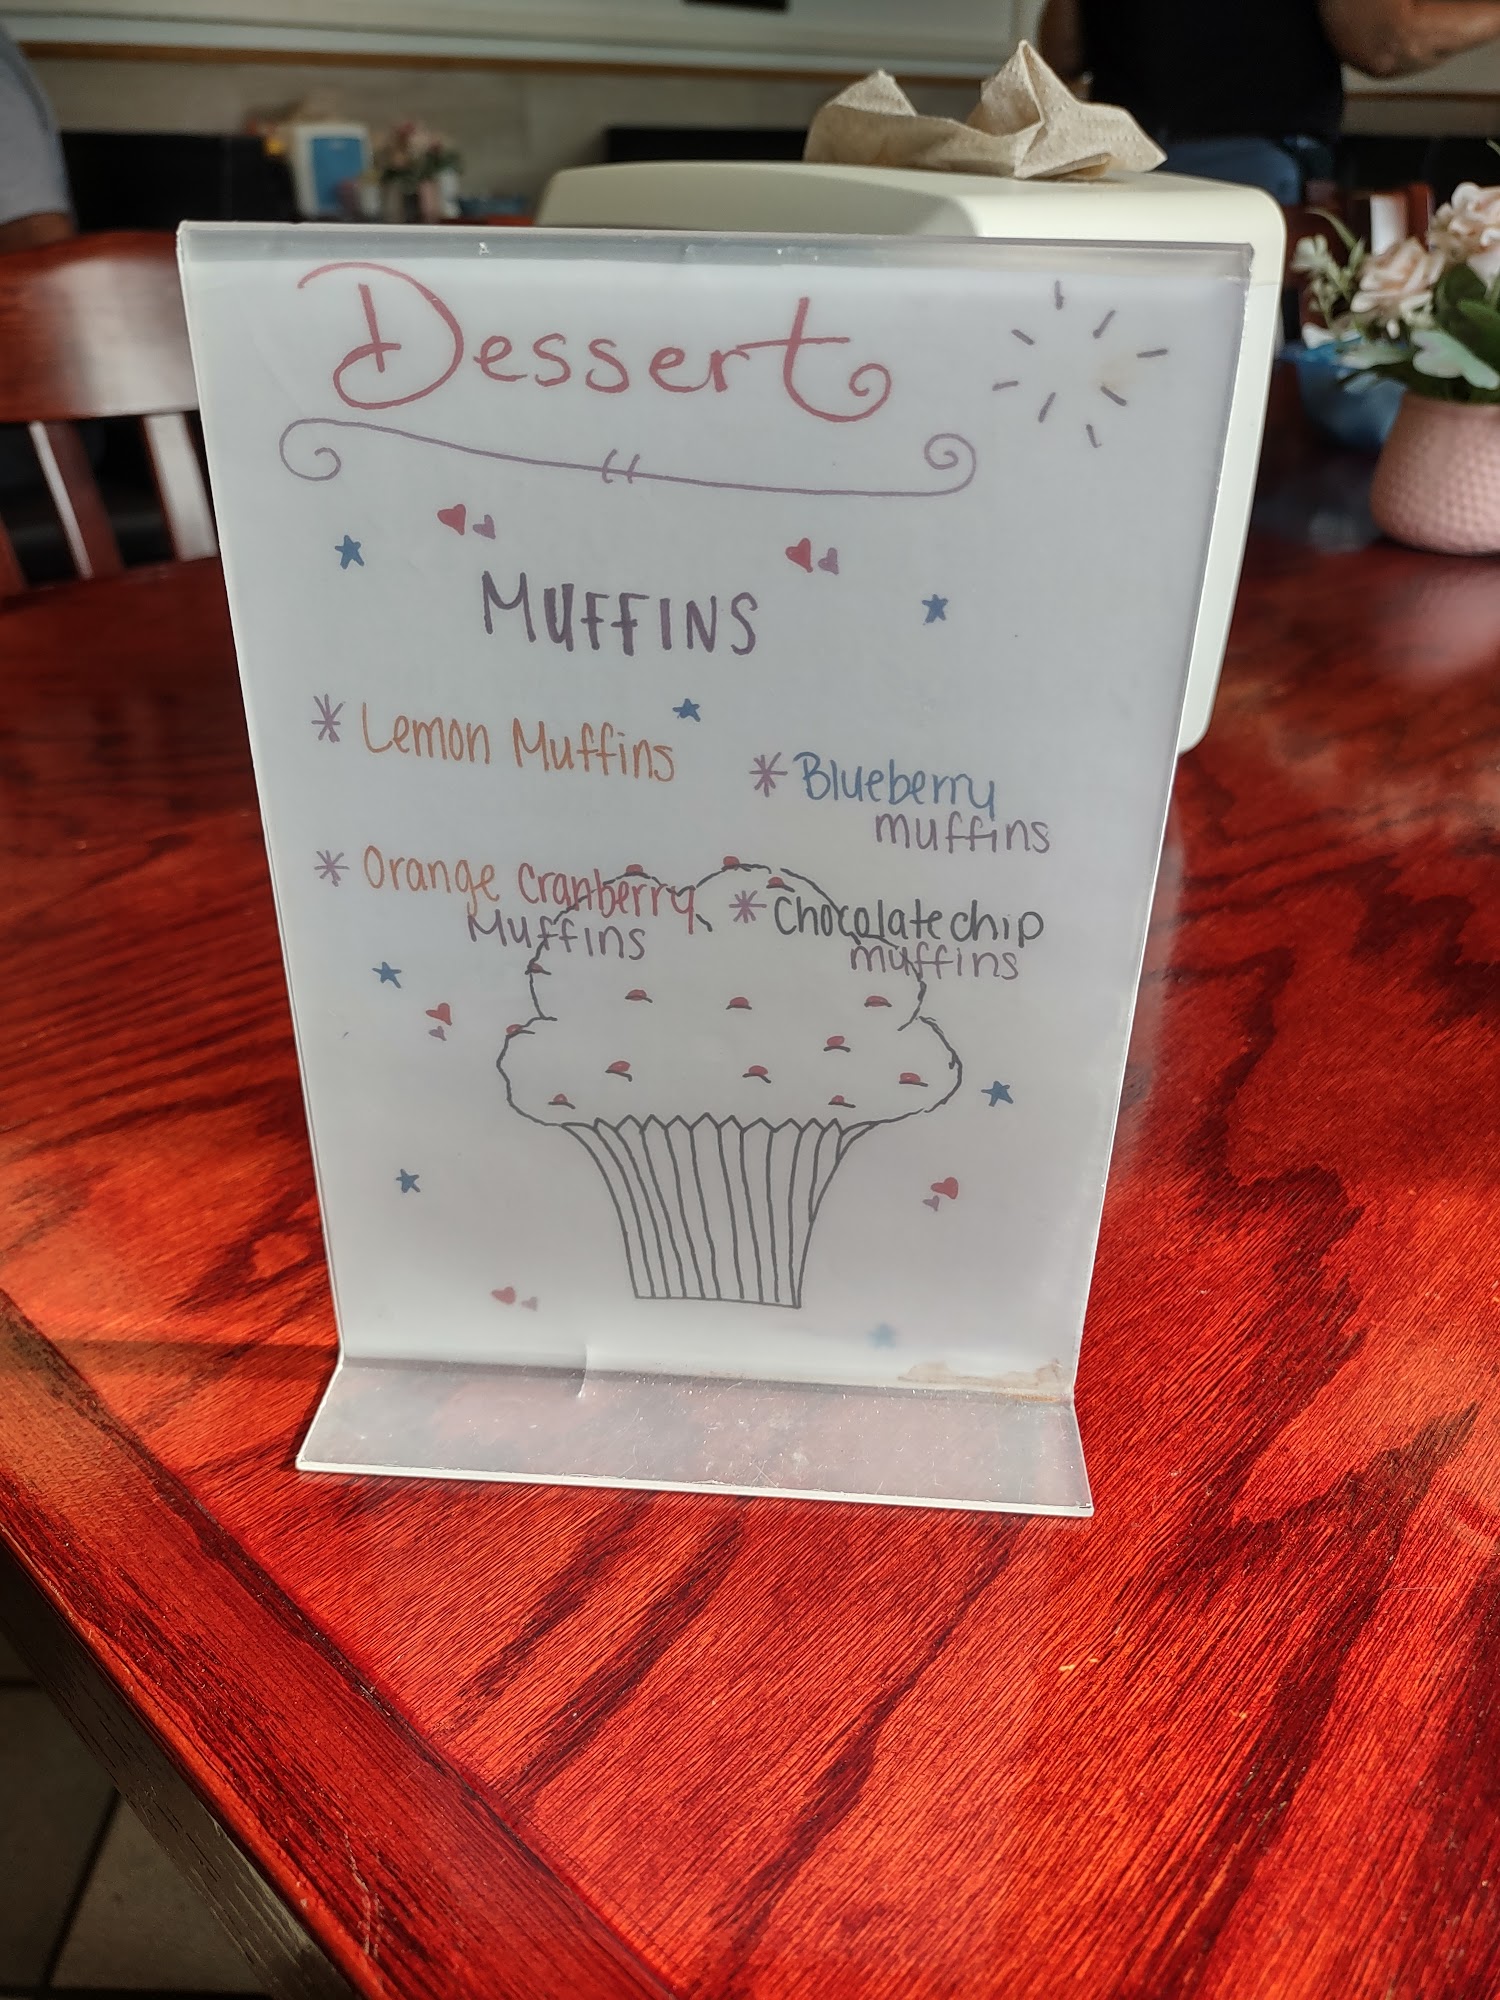 Dessert
MUFFINS
* Lemon Muffins
* Blueberry
muffins
* Orange Cranberry
Muffins
* Chocolate chip
muffins